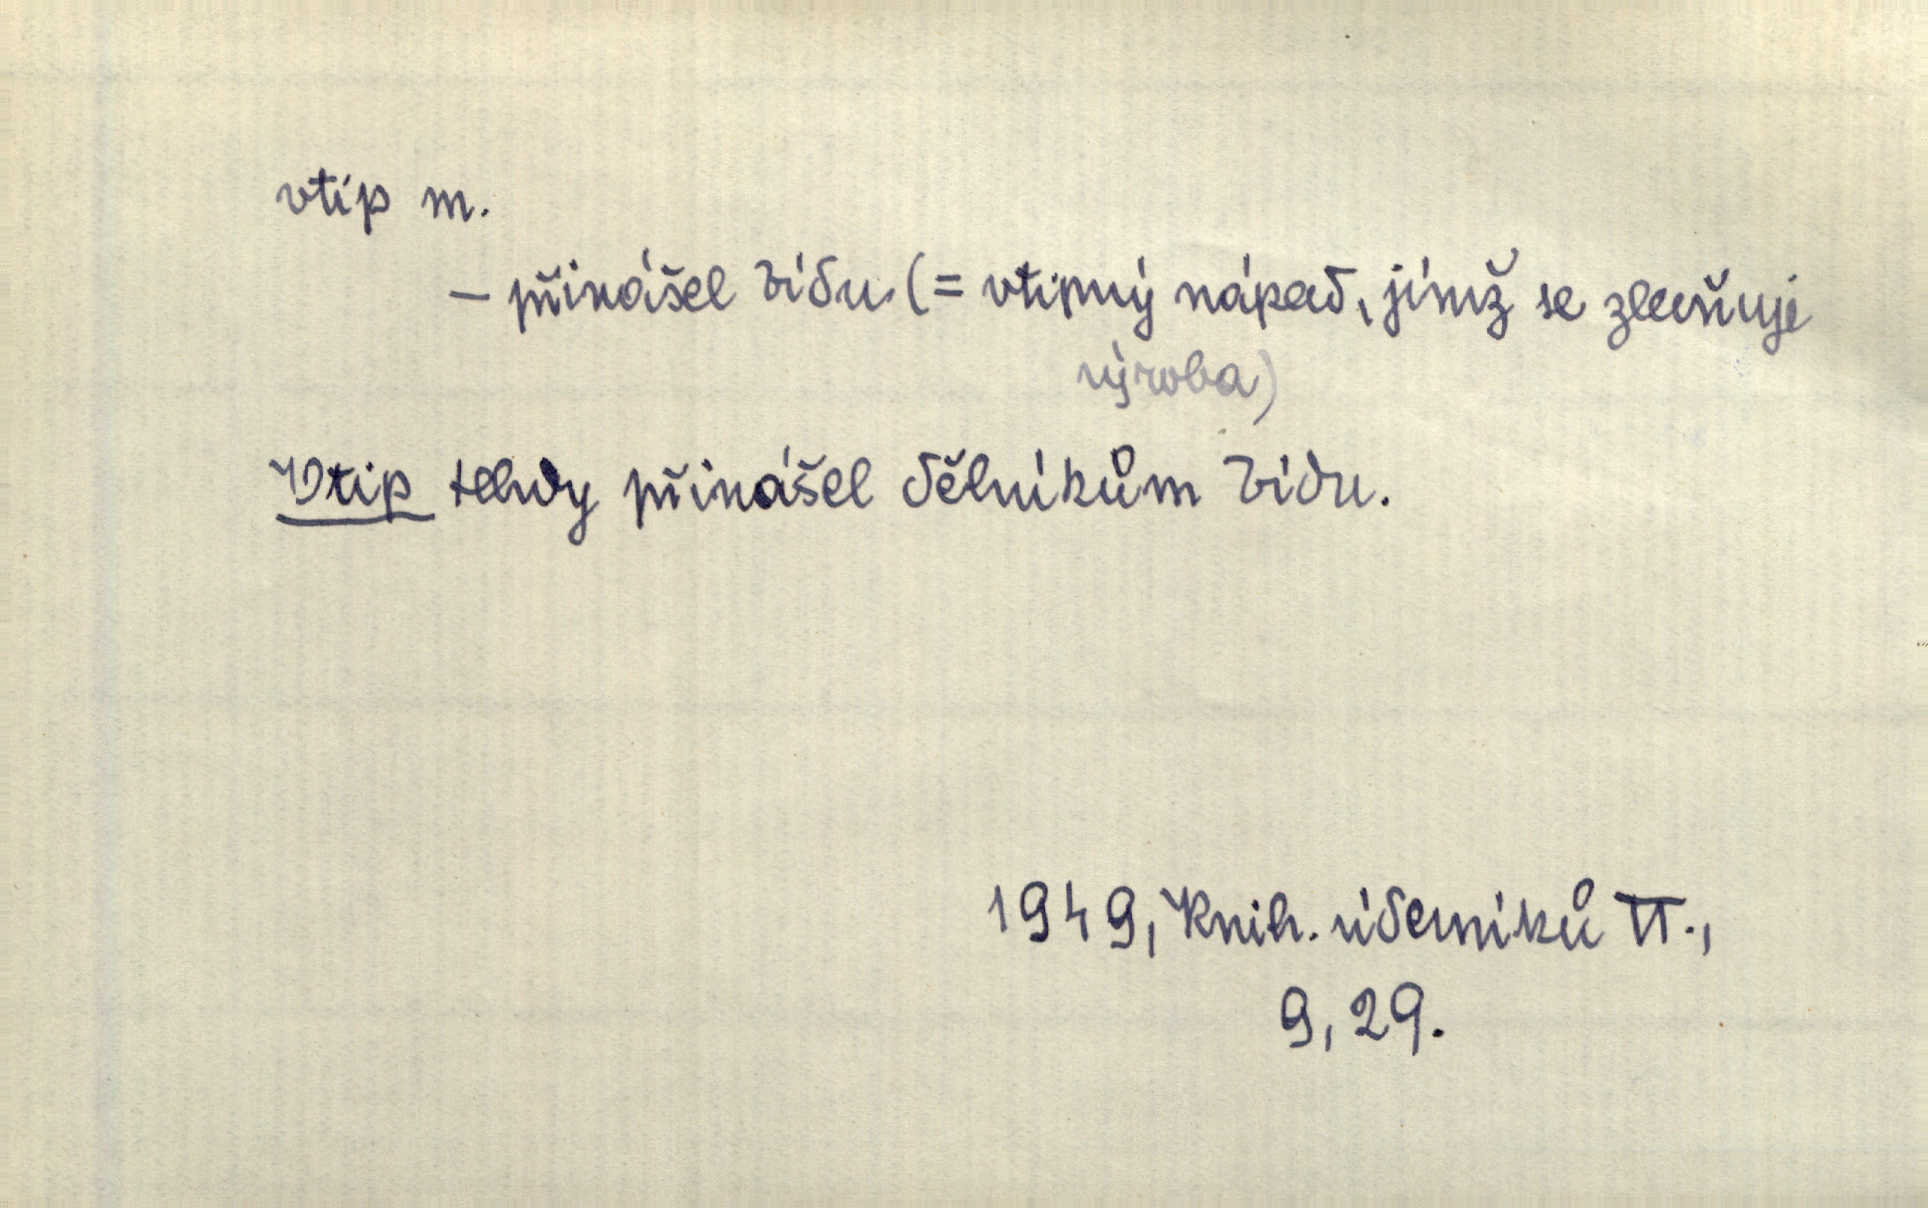 vtip m.
– přinášel bídu. (= vtipný nápad, jímž se zlevňuje
výroba)
Vtip tehdy přinášel dělníkům bídu.
1949, Knih. úderníků II.,
9, 29.